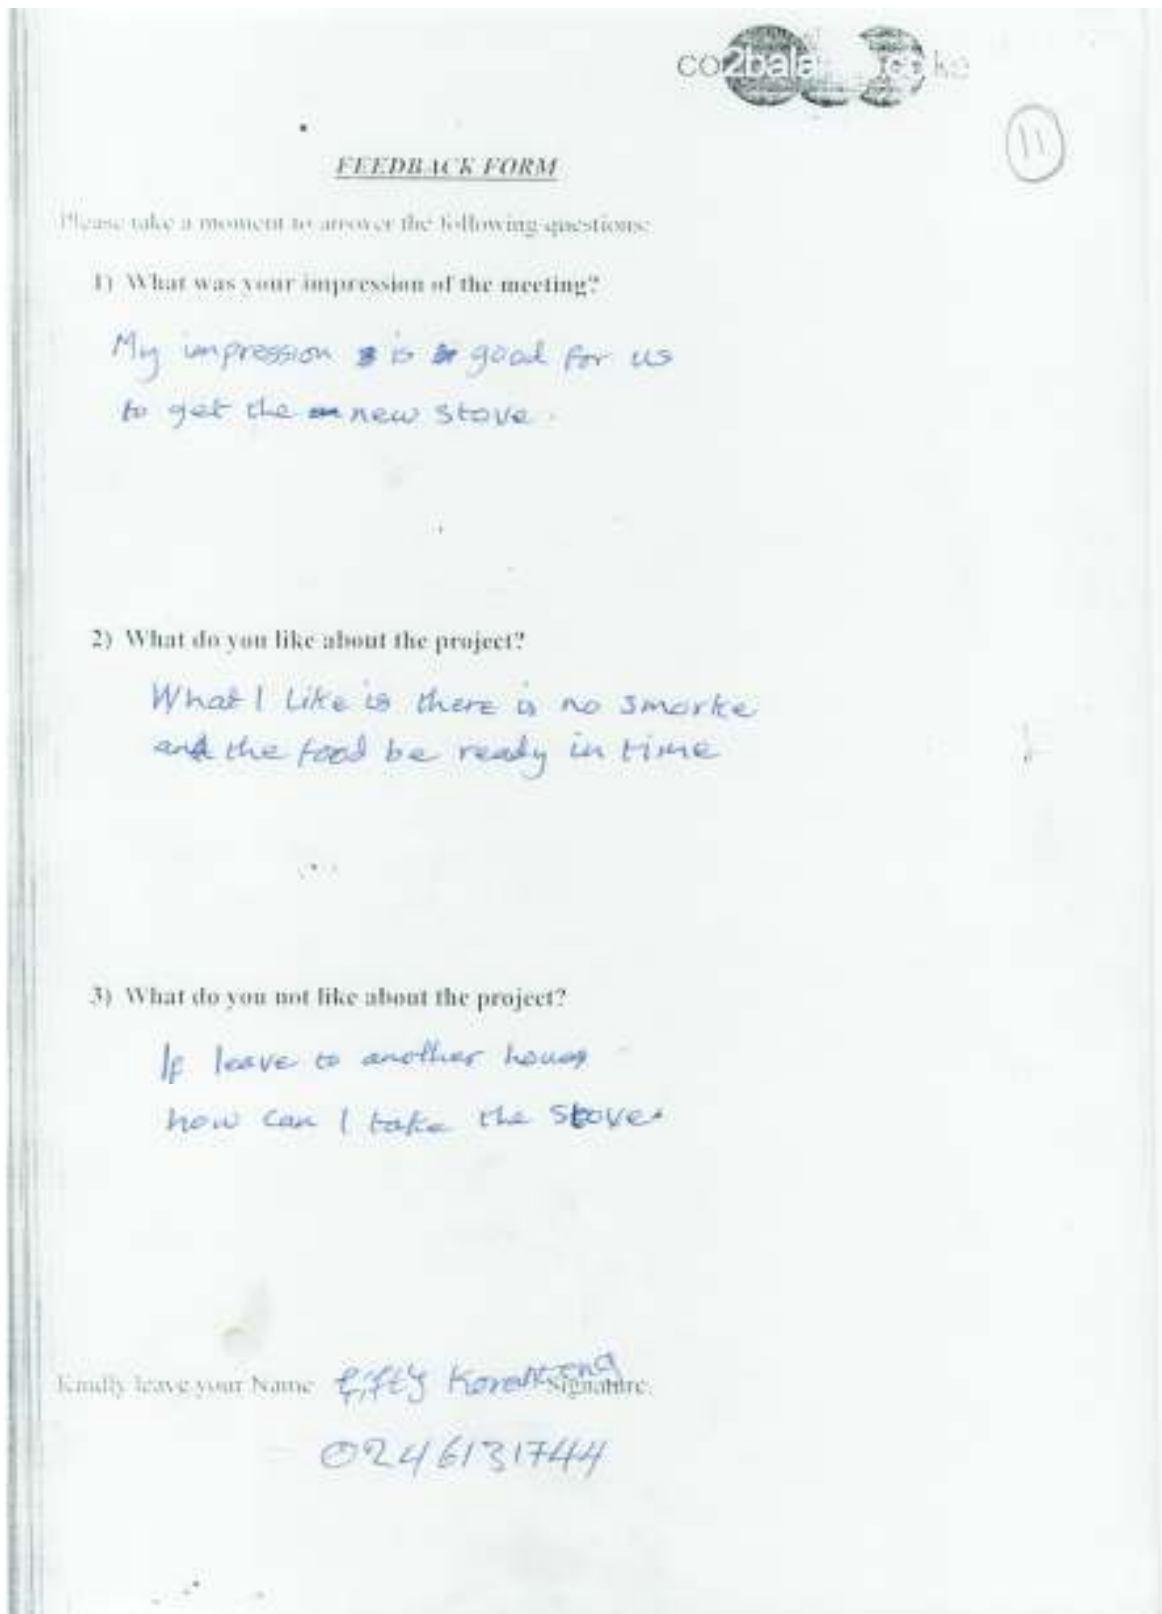 co2bala
11
FEEDBACK FORM
Please take a moment to answer the following questions:
1) What was your impression of the meeting?
My impression is good for us
to get the new stove.
2) What do you like about the project?
What I Like is there is no smorke
and the food be ready in time
3) What do you not like about the project?
If leave to another house
how can I take the stove.
Kindly leave your Name Signature.
0246131744